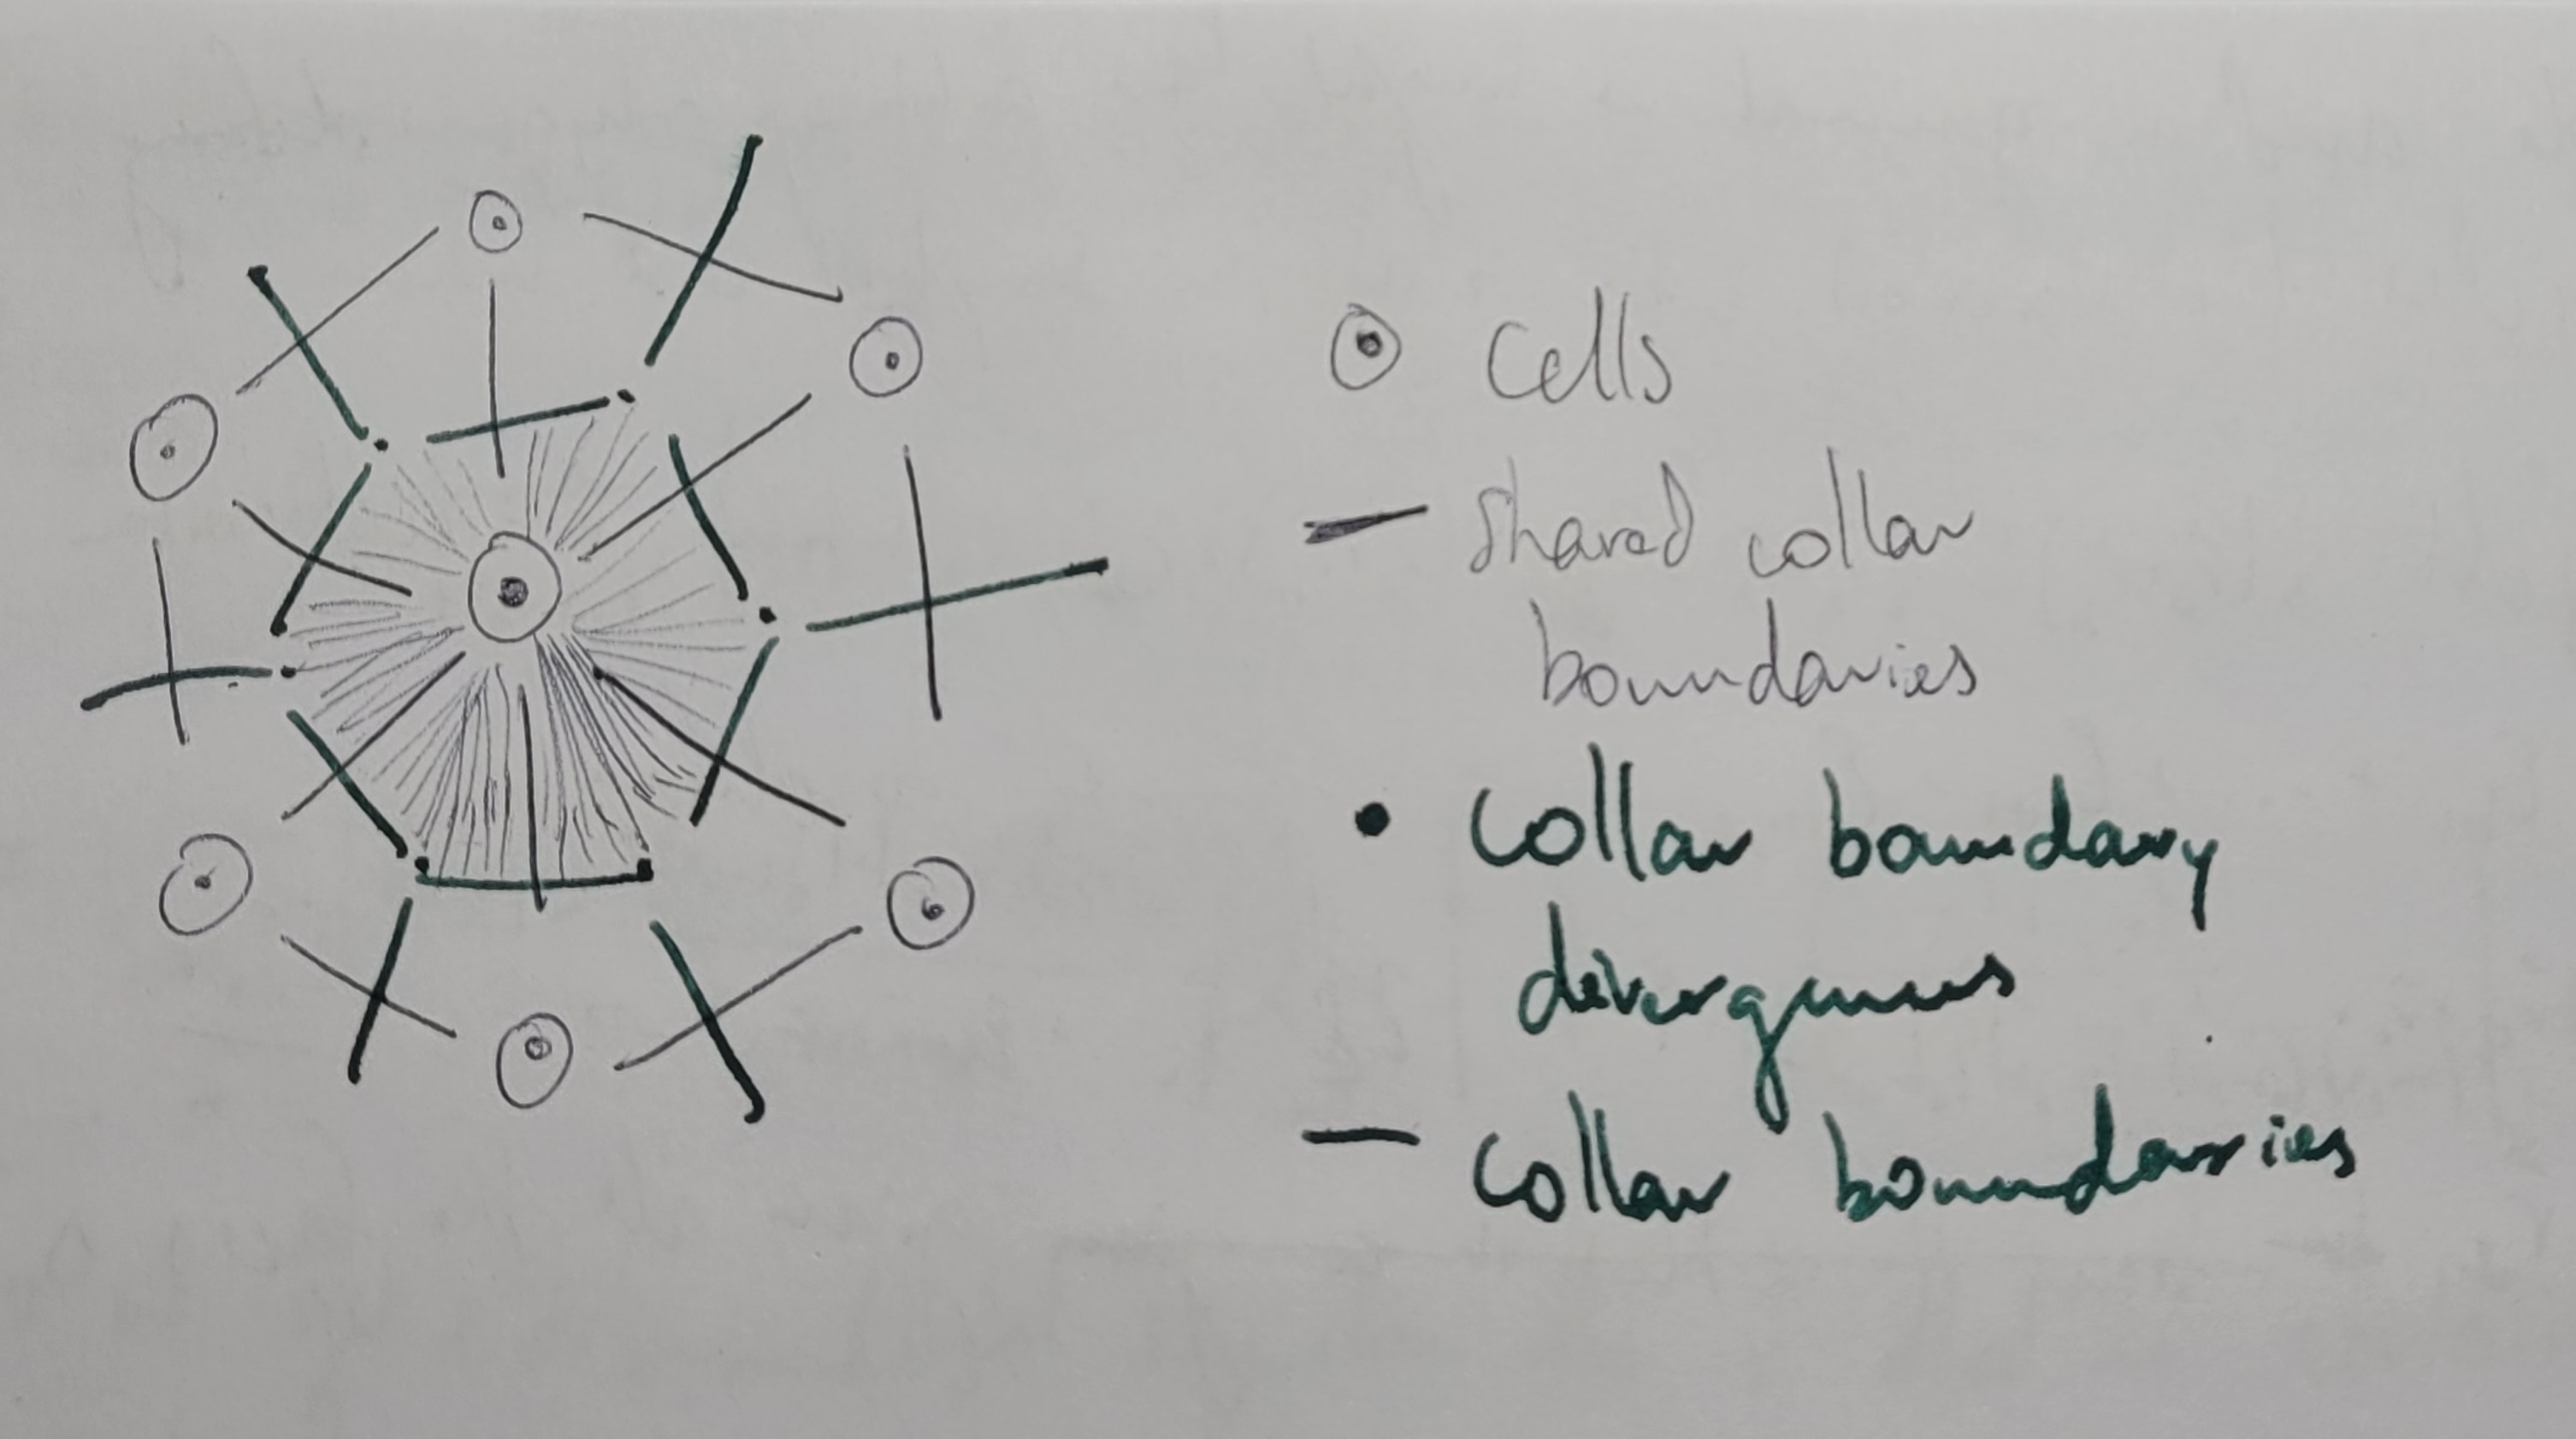 Cells
Shared collar
boundaries
collar boundary
divergences
collar boundaries